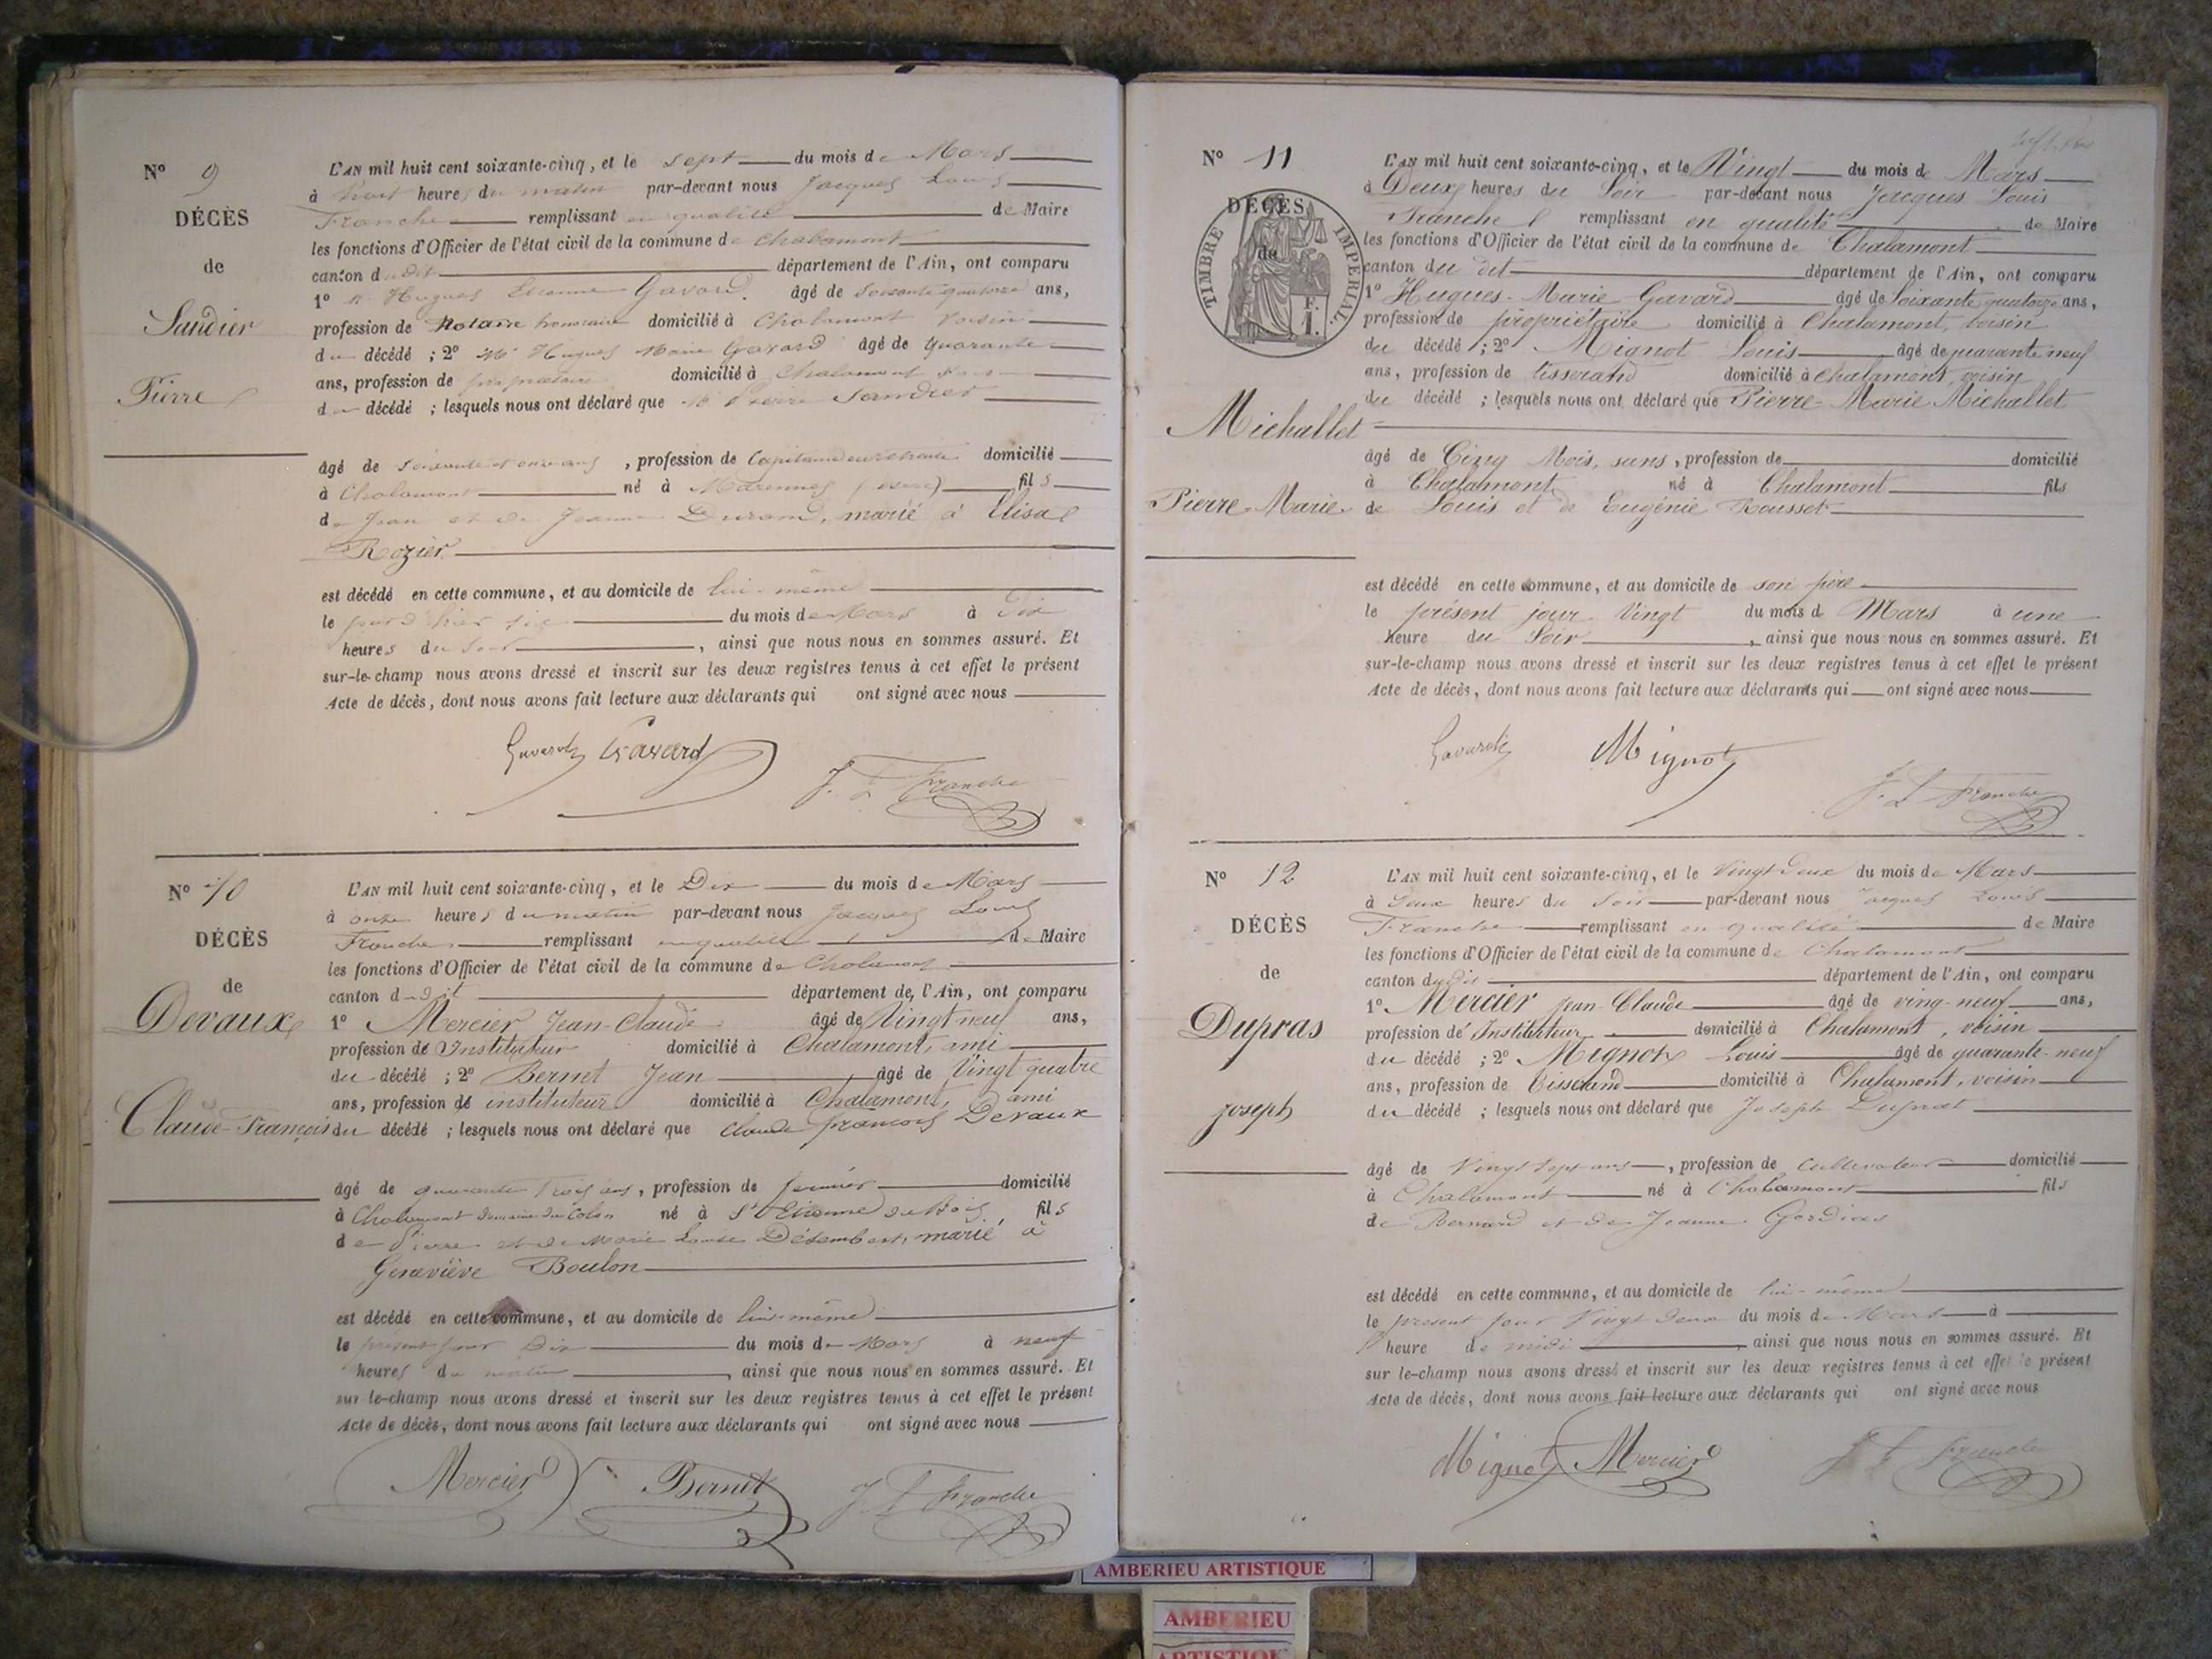 N° 9
DÉCÈS
de
Sandier
Pierre
L'AN mil huit cent soixante-cinq, et le sept du mois de Mars
à huit heures du matin par-devant nous Jacques Louis
Franche remplissant en qualité de Maire
les fonctions d'Officier de l'état civil de la commune de Chalamont
canton du dit département de l'Ain, ont comparu
1° Mr Hugues Etienne Gavard. âgé de soixante quatorze ans,
profession de Notaire honoraire domicilié à Chalamont voisin
du décédé ; 2° Mr Hugues Marie Gavard âgé de quarante
ans, profession de propriétaire domicilié à Chalamont
du décédé ; lesquels nous ont déclaré que Mr Pierre Sandier
âgé de soixante et onze ans, profession de Capitaine en retraite domicilié
à Chalamont né à Marennes (isere) fils
de Jean et de Jeanne Durand, marié à Elisa
Rozier
est décédé en cette commune, et au domicile de lui-même
le jour d'hier six du mois de Mars à dix
heures du soir, ainsi que nous nous en sommes assuré. Et
sur-le-champ nous avons dressé et inscrit sur les deux registres tenus à cet effet le présent
Acte de décès, dont nous avons fait lecture aux déclarants qui ont signé avec nous
Gavard Gavard
J. L Franche
N° 10
DÉCÈS
de
Devaux
Claude-François
L'AN mil huit cent soixante-cinq, et le Dix du mois de Mars
à onze heures du matin par-devant nous Jacques Louis
Franche remplissant en qualité de Maire
les fonctions d'Officier de l'état civil de la commune de Chalamont
canton du dit département de l'Ain, ont comparu
1° Mercier Jean-Claude âgé de Vingt neuf ans,
profession de Instituteur domicilié à Chalamont, ami
du décédé ; 2° Bernet Jean âgé de Vingt quatre
ans, profession de instituteur domicilié à Chalamont, ami
du décédé ; lesquels nous ont déclaré que Claude françois Devaux
âgé de quarante trois ans, profession de fermier domicilié
à Chalamont domaine du Colon né à St Etienne du Bois fils
de Pierre et de Marie Louise Désembert, marié à
Geneviève Boulon
est décédé en cette commune, et au domicile de lui-même
le présent jour Dix du mois de Mars à neuf
heures du matin, ainsi que nous nous en sommes assuré. Et
sur le-champ nous avons dressé et inscrit sur les deux registres tenus à cet effet le présent
Acte de décès, dont nous avons fait lecture aux déclarants qui ont signé avec nous
Mercier Bernet J L Franche
N° 11
DÉCÈS
de
TIMBRE IMPERIAL
F.
1.
Michallet
Pierre-Marie
L'AN mil huit cent soixante-cinq, et le Vingt du mois de Mars
à Deux heures du Soir par-devant nous Jacques Louis
Franche remplissant en qualité de Maire
les fonctions d'Officier de l'état civil de la commune de Chalamont
canton du dit département de l'Ain, ont comparu
1° Hugues-Marie Gavard âgé de soixante quatorze ans,
profession de propriétaire domicilié à Chalamont, voisin
du décédé ; 2° Mignot Louis âgé de quarante neuf
ans, profession de tisserand domicilié à Chalamont, voisin
du décédé ; lesquels nous ont déclaré que Pierre-Marie Michallet
âgé de Cinq Mois, sans, profession de domicilié
à Chalamont né à Chalamont fils
de Louis et de Eugénie Rousset
est décédé en cette commune, et au domicile de son père
le présent jour Vingt du mois de Mars à une
heure du Soir, ainsi que nous nous en sommes assuré. Et
sur-le-champ nous avons dressé et inscrit sur les deux registres tenus à cet effet le présent
Acte de décès, dont nous avons fait lecture aux déclarants qui ont signé avec nous
Gavard Mignot
J. L Franche
N° 12
DÉCÈS
de
Dupras
joseph
L'AN mil huit cent soixante-cinq, et le Vingt Deux du mois de Mars
à Deux heures du soir par-devant nous Jacques Louis
Franche remplissant en qualité de Maire
les fonctions d'Officier de l'état civil de la commune de Chalamont
canton du dit département de l'Ain, ont comparu
1° Mercier Jean-Claude âgé de ving-neuf ans,
profession de Instituteur domicilié à Chalamont, voisin
du décédé ; 2° Mignot Louis âgé de quarante-neuf
ans, profession de Tisserand domicilié à Chalamont, voisin
du décédé ; lesquels nous ont déclaré que Joseph Duprat
âgé de Vingt sept ans, profession de cultivateur domicilié
à Chalamont né à Chalamont fils
de Bernard et de Jeanne Gordias
est décédé en cette commune, et au domicile de lui-même
le présent jour Vingt deux du mois de Mars à
heure de midi, ainsi que nous nous en sommes assuré. Et
sur le-champ nous avons dressé et inscrit sur les deux registres tenus à cet effet le présent
Acte de décès, dont nous avons fait lecture aux déclarants qui ont signé avec nous
Mignot Mercier J L Franche
AMBERIEU ARTISTIQUE
AMBERIEU
ARTISTIQUE